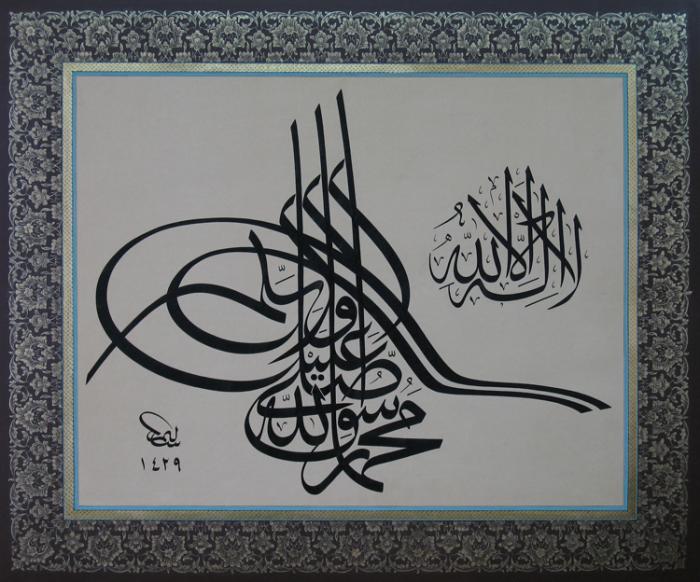 لا اله الا الله
محمد رسول الله
صلى الله عليه و
١٤٢٩